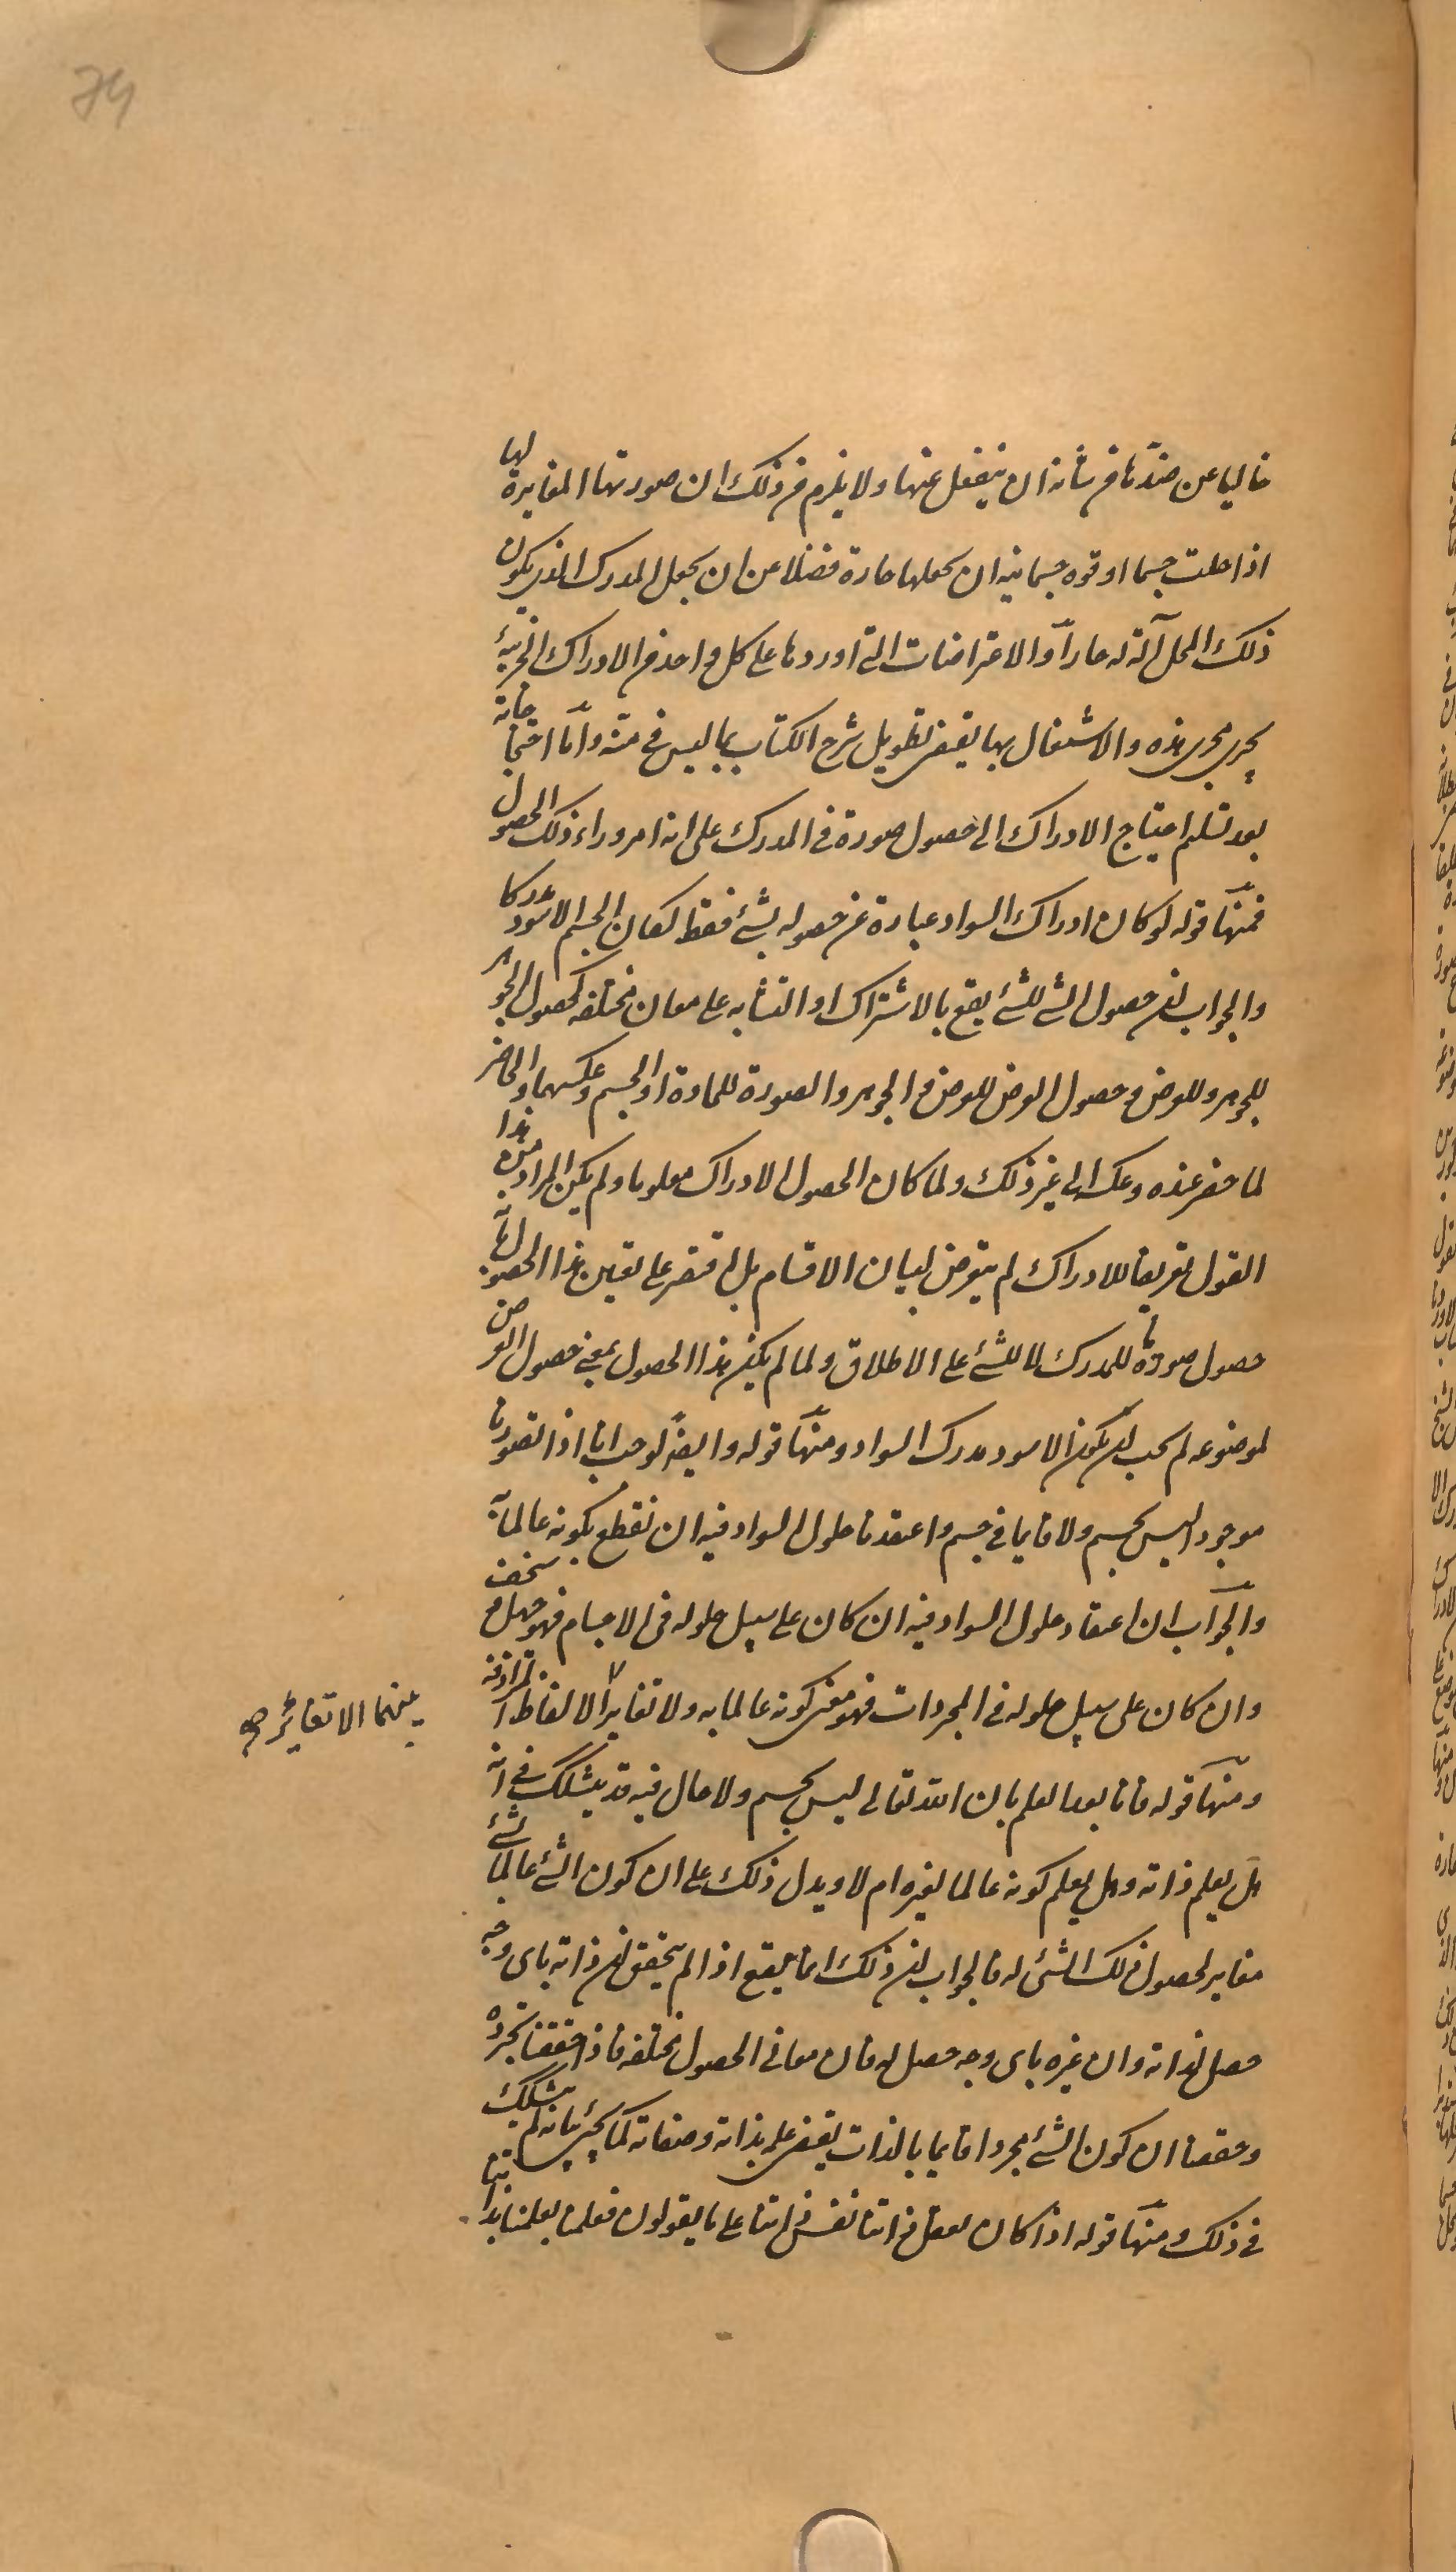 74
خاليا عن ضدّها من شانه ان ينفعل عنها ولا يلزم من ذلك ان صورتها المغايرة لها
اذا حلت جسما او قوه جسمانيه ان يجعلها حارة فضلا عن ان يجعل المدرك الذى يكون
ذلك المحل آلة له حارا والاعتراضات التى اوردوها على كل واحد من الادراك الجزئيّة
يجرى مجرى هذه والاشتغال بها يقتضى تطويل شرح الكتاب بما ليس فى متنه وامّا احتجاجاته
بعد تسليم احتياج الادراك الى حصول صورة فى المدرك على انه امر وراء ذلك الحصول
فمنها قوله لو كان ادراك السواد عبارة عن حصوله لشئ فقط لكان الجسم الاسود مدركا
والجواب ان حصول الشئ للشئ يقع بالاشتراك او التشابه على معان مختلفه كحصول الجوهر
للجوهر وللعرض و حصول العرض للعرض و الجوهر والصورة للمادة او الجسم وعكسهما والحاضر
لما حضر عنده وعكسه الى غير ذلك ولما كان الحصول الادراك معلوما ولم يكن المراد من هذا
القول تعريفا للادراك لم يتعرض لبيان الاقسام بل اقتصر على تعين هذا الحصول بانه
حصول صورة ما للمدرك لا للشئ على الاطلاق ولما لم يكن هذا الحصول بمعنى حصول العرض
لموضوعه لم يجب ان يكون الاسود مدرك السواد ومنها قوله وايضا لوجب انا اذا تصورنا
موجودا ليس بجسم ولا قايما فى جسم واعتقدنا حلول السواد فيه ان نقطع بكونه عالما به
والجواب ان اعتقاد حلول السواد فيه ان كان على سبيل حلوله فى الاجسام فهو جهل سخف
وان كان على سبيل حلوله فى المجردات فهو معنى كونه عالما به ولا تغاير الالفاظ المترادفة
بينهما الا تغاير صح
ومنها قوله فانا بعد العلم بان الله تعالى ليس بجسم ولا حال فيه قد يشكك فى انه
هل يعلم ذاته وهل يعلم كونه عالما لغيره ام لا ويدل ذلك على ان كون الشئ عالما لشئ
مغاير لحصول ذلك الشئ له فالجواب ان ذلك انما يقع اذا لم يتحقق ان ذاته باى وجه
حصل لذاته وان غيره باى وجه حصل له فان معانى الحصول مختلفه فاذا حققنا تجرده
وحققنا ان كون الشئ مجردا قايما بالذات يقتضى علمه بذاته وصفاته كما يجئ بيانه لم يتشكك
فى ذلك ومنها قوله اذا كان تعقل ذاتنا نفس ذاتنا على ما يقولون فعلمنا بعلمنا بذاتنا